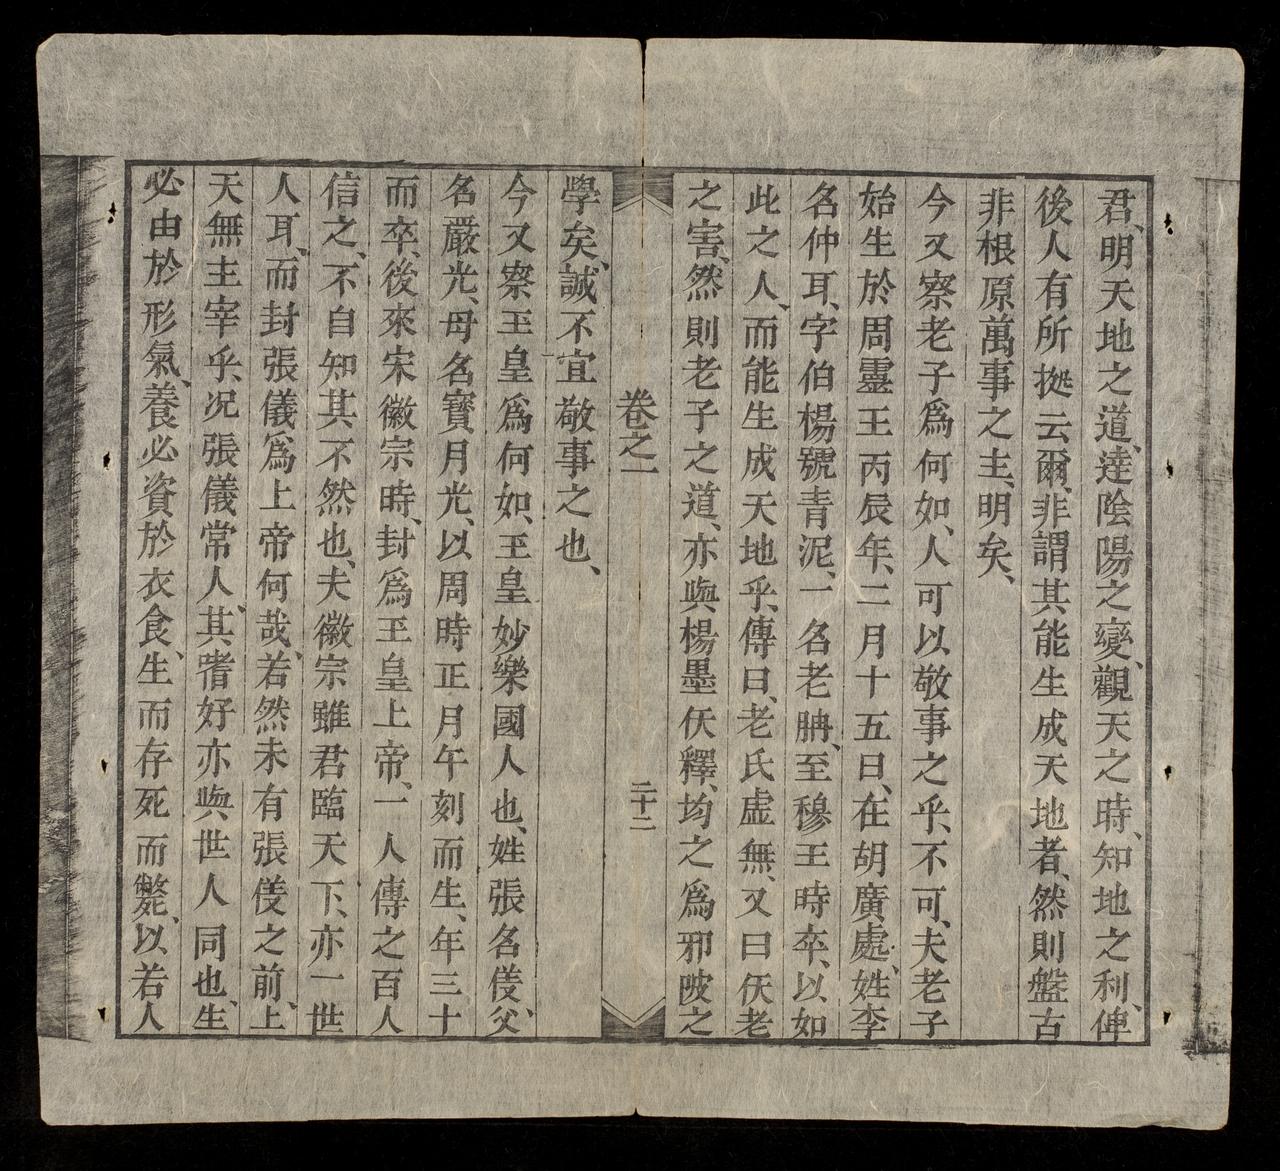 君、明天地之道、達陰陽之變、觀天之時、知地之利、俾
後人有所挻云爾、非謂其能生成天地者、然則盤古
非根原萬事之主、明矣、
今又察老子爲何如、人可以敬事之乎、不可、夫老子
始生於周靈王丙辰年、二月十五日、在胡廣處、姓李
名仲耳、字伯楊號青泥、一名老聃、至穆王時卒、以如
此之人、而能生成天地乎、傳曰、老氏虛無、又曰仸老
之害、然則老子之道、亦與楊墨仸釋、均之爲邪陂之
卷之一
二十二
學矣、誠不宜敬事之也、
今又察玉皇爲何如、玉皇妙樂國人也、姓張名儀、父
名嚴光、母名寶月光、以周時正月午刻而生、年三十
而卒、後來宋徽宗時、封爲玉皇上帝、一人傳之百人
信之、不自知其不然也、夫徽宗雖君臨天下、亦一世
人耳、而封張儀爲上帝何哉、若然未有張儀之前、上
天無主宰乎、况張儀常人、其嗜好亦與世人同也、生
必由於形氣、養必資於衣食、生而存死而斃、以若人